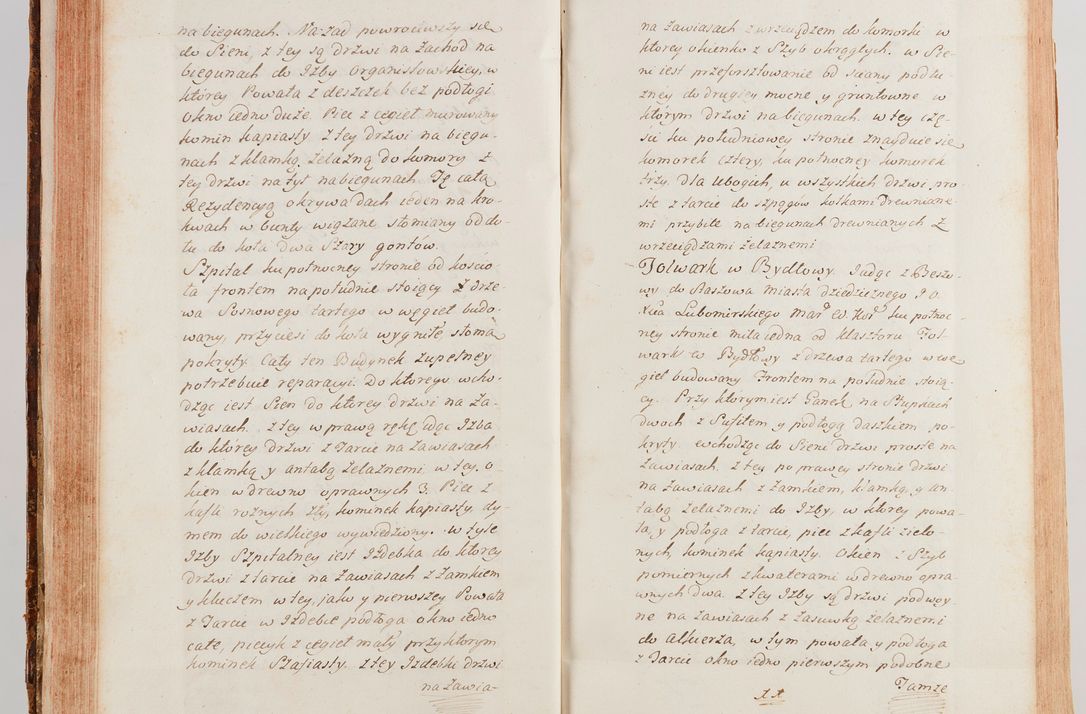 na biegunach. Nazad powrociwszy się
do Sieni, z tey są drzwi na Zachod na
biegunach do Izby Organistowskiey, w
ktorey Powała z deszczek bez podłogi
Okno iedno duże. Piec z cegieł murowany
komin kapiasty z tey drzwi na biegu-
nach z klamką żelazną do komory z
tey drzwi na tył na biegunach. Tę całą
Rezydencyą okrywa dach ieden na kro-
kwach w bunty wiązane słomiany od do-
łu do koła dwa Szary gontów.
Szpital ku pułnocney stronie od kościo-
ła frontem na południe stoiący z drze-
wa Sosnowego tartego w węgieł budo-
wany, przyciesi do koła wygniłe, słomą
pokryty. Cały ten Budynek zupełney
potrzebuie reparacyi. Do ktorego wcho-
dząc iest Sien do ktorey drzwi na Za-
wiasach. z tey w prawą rękę idąc Izba
do ktorey drzwi z Tarcic na Zawiasach
z klamką y antabą żelaznemi w tey, o-
kien w drewno oprawnych 3. Piec z
kafli rożnych zły, kominek kapiasty, dy-
mem do wielkiego wywiedziony. w tyle
Izby Szpitalney iest Izdebka do ktorey
drzwi z tarcic na Zawiasach z Zamkiem
y kluczem w tey, jako y pierwszey Powała
z Tarcic w Izdebce podłoga okno iedno
całe, piecyk z cegieł mały przy ktorym
kominek Szafiasty. z tey Izdebki drzwi
na Zawia-
na Zawiasach z wrzeciądzem do komorki w
ktorey okienko z Szyb okrągłych. w Sie-
ni iest przeforsztowanie od sciany podłu-
żney do drugiey mocne y gruntowne w
którym drzwi na biegunach. w tey czę-
sci ku południowey stronie znayduie się
komorek cztery, ku pułnocney komorek
trzy. Dla Ubogich, u wszystkich drzwi pro-
ste z tarcic do szpągów kołkami drewniane-
mi przybite na biegunach drewnianych z
wrzeciądzami żelaznemi
Folwark w Bydłowy. Jadąc z Beszo-
wy do Staszowa Miasta dziedzicznego J. O.
Xcia Lubomirskiego Mar: W. Kor: ku pułnoc-
ney stronie mila iedna od klasztoru Fol-
wark w Bydłowy z drzewa tartego w wę-
gieł budowany Frontem na południe stoią-
cy. Przy ktorym iest Ganek na Słupkach
dwoch z Sufitem y podłogą daszkiem po-
kryty. wchodząc do Sieni drzwi proste na
Zawiasach. z tey po prawey stronie drzwi
na Zawiasach z Zamkiem, klamką, y an-
tabą żelaznemi do Izby, w ktorey powa-
ła, y podłoga z tarcic, piec z kafli zielo-
nych, kominek kapiasty. Okien z Szyb
pomiernych z kwaterami w drewno opra-
wnych dwa. z tey Izby są drzwi podwoy-
ne na Zawiasach z Zasuwką żelaznemi
do alkierza, w tym powała, y podłoga
z Tarcic okno iedno pierwszym podobne
Tamże